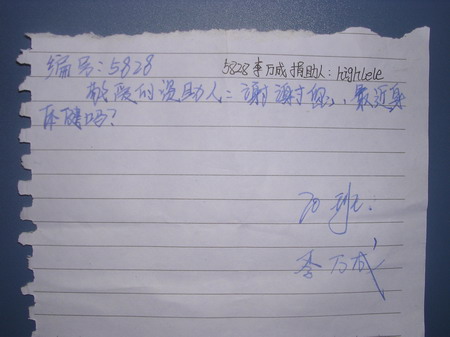 编号:5828
5828 李万成 捐助人:highlele
敬爱的资助人:谢谢您,最近身
体健吗?
70班.
李万成